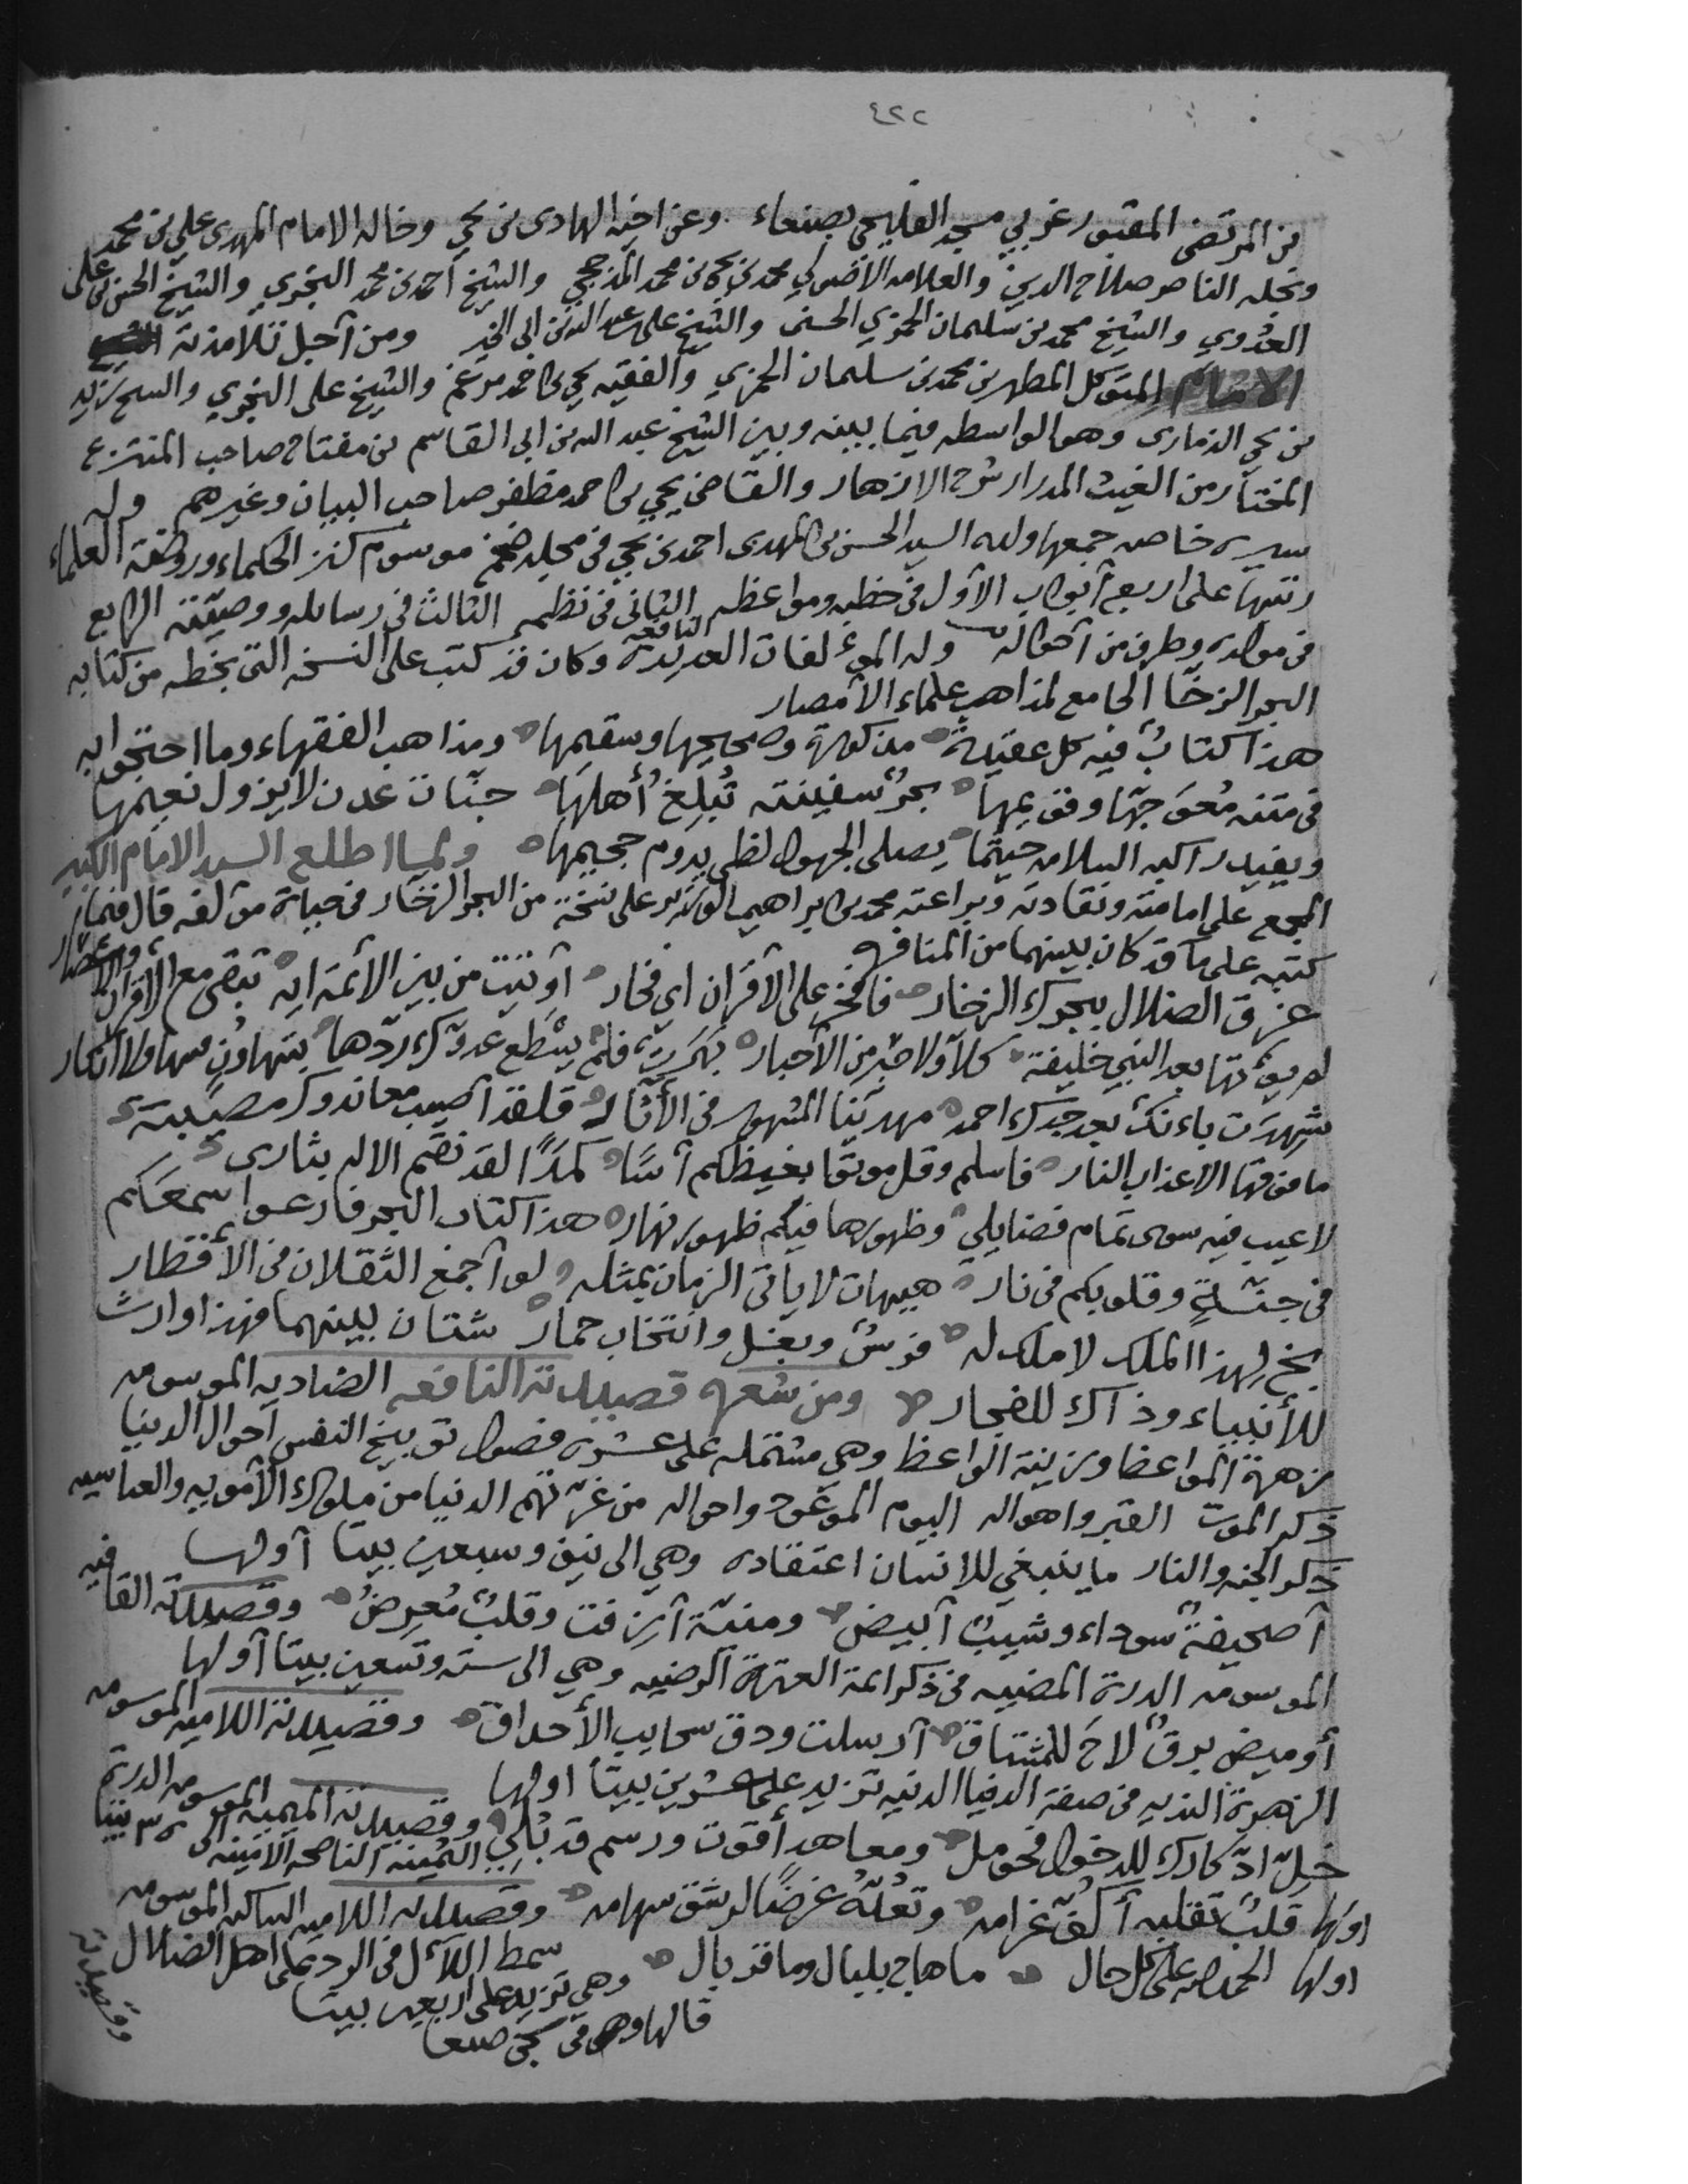 ٤٢٢
بن المرتضى المقبور غربي مسجد الفليحي بصنعاء وعن اخيه الهادى بن يحي وخاله الامام المهدى علي بن محمد
ونجله الناصر صلاح الدين والعلامه الاصولي محمد بن يحي بن محمد المذحجي والشيخ احمد بن محمد النجري والشيخ الحسن بن على
العدوي والشيخ محمد بن سليمان الحمزي الحسنى والشيخ على بن عبد الله بن ابى الخير ومن أجل تلامذته
الامام المتوكل المطهر بن محمد بن سليمان الحمزي والفقيه يحي بن احمد مرغم والشيخ على النجري والشيخ زيد
بن يحي الذمارى وهو الواسطه فيما بينه وبين الشيخ عبد الله بن ابى القاسم بن مفتاح صاحب المنتزع
المختار من الغيث المدرار شرح الازهار والقاضى يحيي بن احمد مظفر صاحب البيان وغيرهم وله
سيره خاصه جمعها ولده السيد الحسن بن المهدى احمد بن يحي في مجلد ضخم موسوم كنز الحكماء وروضة العلماء
رتبها على اربع أبواب الأول في خطبه ومواعظه الثانى فى نظمه الثالث في رسايله ووصيته الرابع
فى مولده وطرف من أحواله وله المؤلفات العديدة النافعة وكان قد كتب على النسخه التى بخطه من كتابه
البحر الزخار الجامع لمذاهب علماء الأمصار
هذا كتابٌ فيه كل عقيدة مذكورة وصحيحها وسقيمها ومذاهب الفقهاء وما احتجوا به
فى متنه مُعوَجها وقويمها بحرٌ سفينته تُبلِغُ أهلها جنّات عدن لايزول نعيمها
ويفيد راكبه السلامه حيثما يصلى الجهول لظى يدوم جحيمها ولما اطلع السيد الامام الكبير
المجمع على امامته ونقادته وبراعته محمد بن ابراهيم الوزير على نسخة من البحر الزخار في حياة مؤلفه قال فيما
كتبه على ما قد كان بينهما من المنافره
غرق الضلال ببحرك الزخار فافخر على الأقران اى فخار أوتيت من بين الأئمة ايه تبقى مع الأقران والاعصار
لم يؤتها بعد النبي خليفة كلا ولا حبر من الأحبار بهرت فلم يسطع عدوّك ردّها بتهاون منها ولا انكار
شهدت بأنك بعد جدك احمد مهديّنا المشهور فى الأثار فلقد أصيب معاندوك مصيبة
مافوقها الاعذاب النار فاسلم وقل موتوا بغيظكم أسًا كمدًا لقد نصّم الاله بثارى
لاعيب فيه سوى تمام فضايلي وظهورها فيكم ظهور نهار هذا كتاب البحر فارعوا سمعكم
فى جنّةٍ وقلوبكم فى نار هيهات لا ياتى الزمان بمثله لو أجمع الثقلان فى الأقطار
بخ لهذا الملك لا ملك له فرسٌ وبغل وانتخاب حمار شتان بينهما فهذا وارث
للأنبياء وذآك للفجار ومن شعره قصيدته النافعه الضاديه الموسومه
نزهة المواعظ وزينة الواعظ وهي مشتمله على عشره فصول توبيخ النفس أحوال الدنيا
ذكر الموت القبر واهواله اليوم الموعود واحواله من غرّتهم الدنيا من ملوك الأمويه والعباسيه
ذكر الجنه والنار ماينبغي للانسان اعتقاده وهي الى نيف وسبعين بيتا أولها
أصحيفةٌ سوداء وشيبٌ أبيض ومنيّة أزفت وقلبٌ مُعرِضُ وقصيدته القافيه
الموسومه الدرة المضيه فى ذكر ائمة العترة الرضيه وهي الى سته وتسعين بيتا أولها
أوميض برقٌ لاحَ للمشتاق أرسلت ودق سحايب الأحداق وقصيدته اللاميه الموسومه
الزهرة النديه فى صفة الدنيا الدنيه تزيد على عشرين بيتًا اولها
خلّ ادّكارك للدخول فحومل ومعاهد أقوت ورسم قد بُلي وقصيدته الميميه الموسومه الدرة الثمينه الناصحه الامينه الى ٣٥ بيتا
اولها قلبٌ تقلبه أكفّ غرامه وتعُدّه غرضًا لرشق سهامه وقصيدته اللاميه الساكنه الموسومه
سمط اللآل فى الرد على اهل الضلال
اولها الحمد لله على كل حال ما هاج بلبال وما قر بال وهى تزيد على اربعين بيتا
قالها وهو فى سجن صنعا
وقصيدته